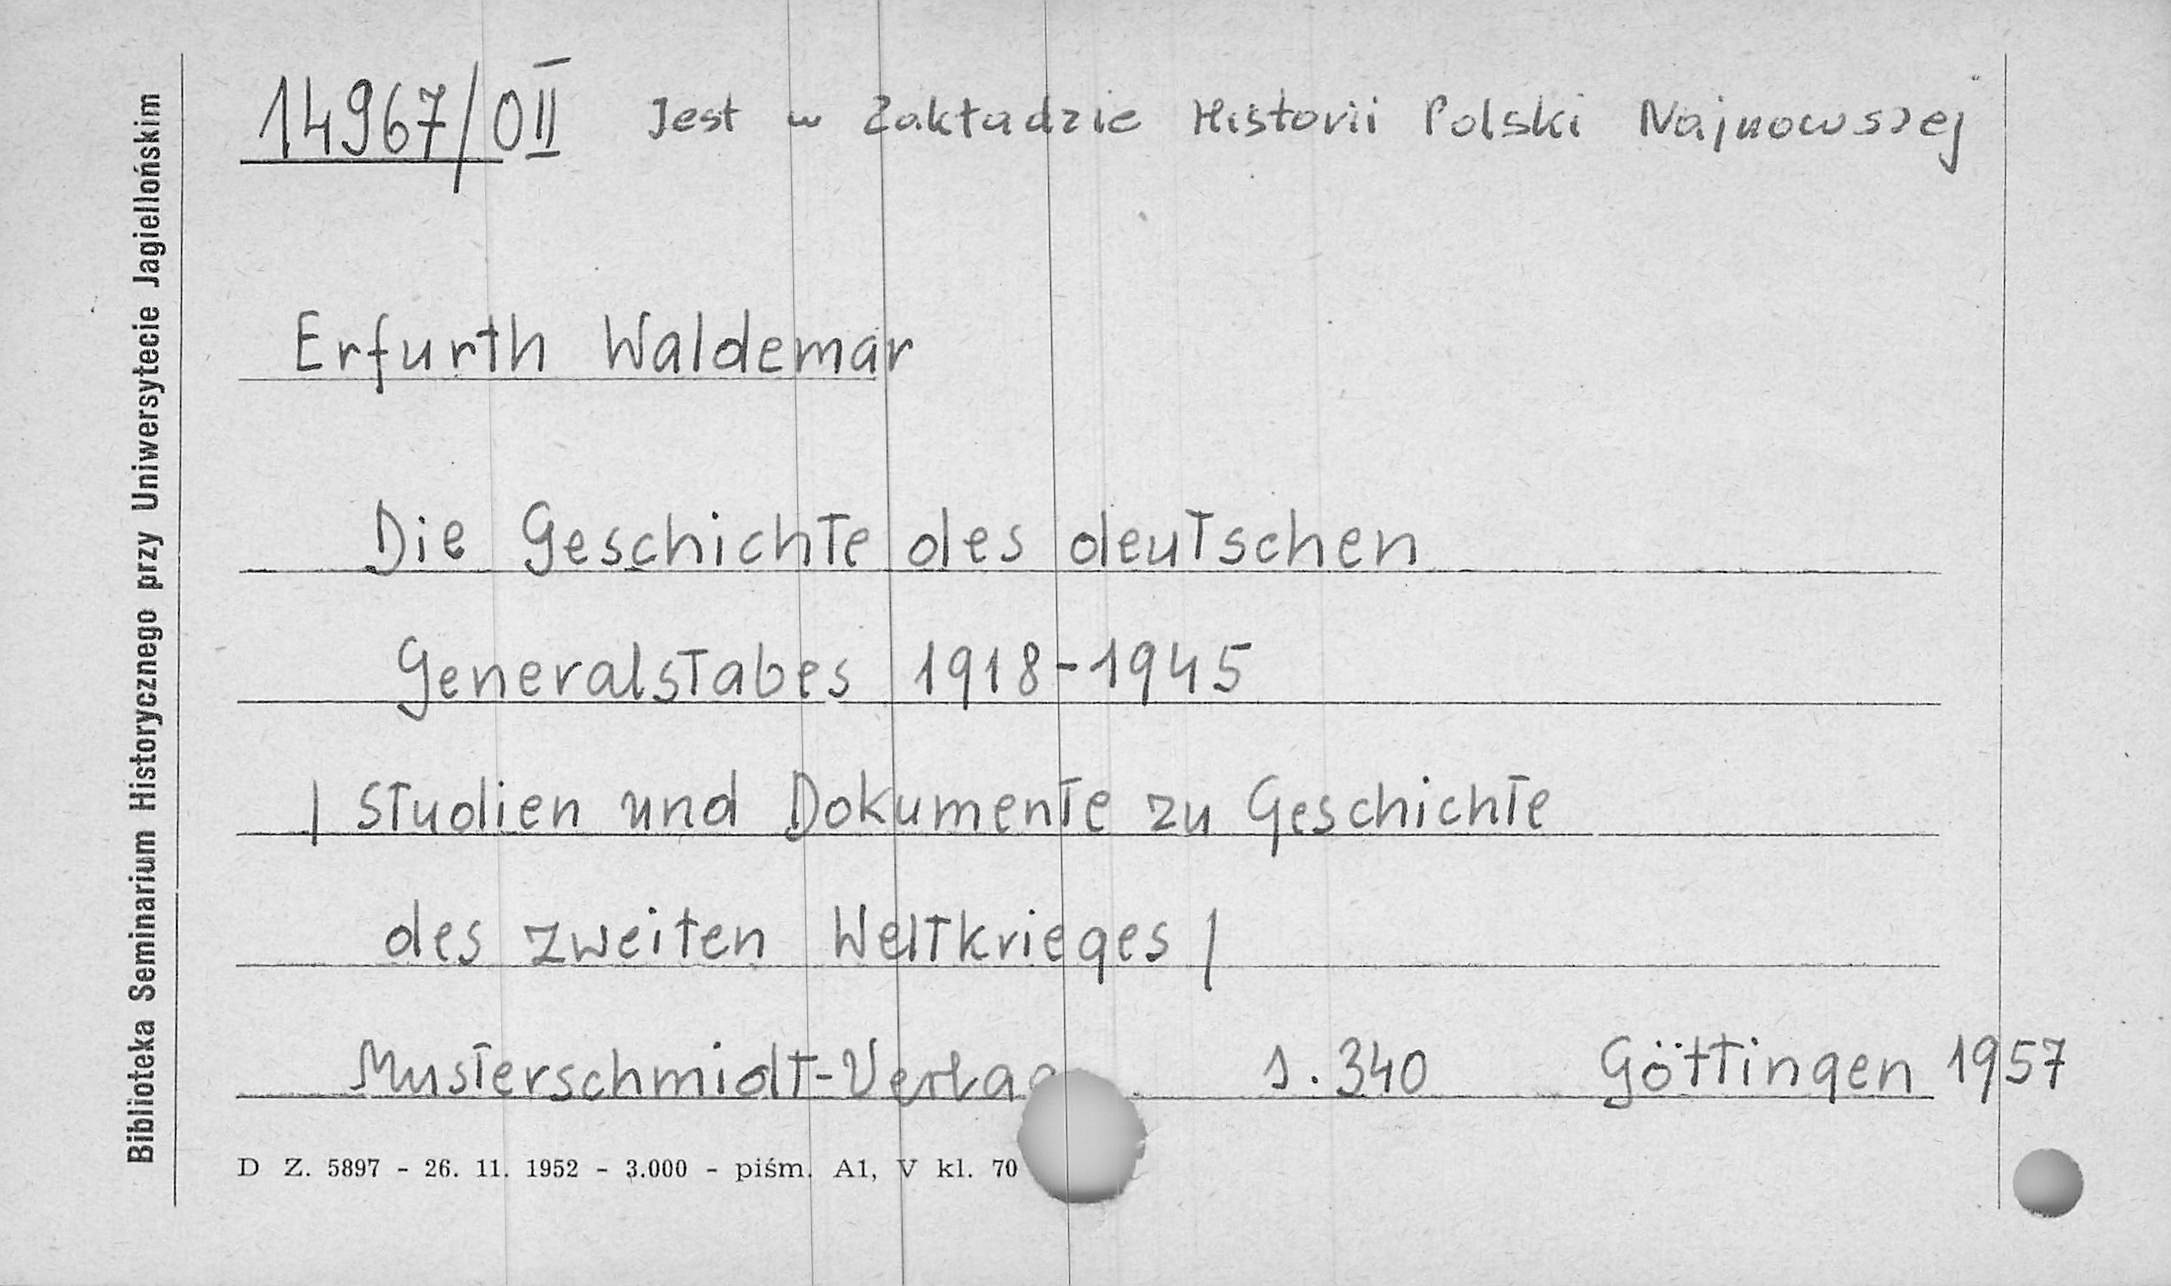 Biblioteka Seminarium Historycznego przy Uniwersytecie Jagiellońskim
14967/OII Jest w Zakładzie Historii Polski Najnowszej
Erfurth Waldemar
Die Geschichte des deutschen
Generalstabes 1918-1945
/ Studien und Dokumente zu Geschichte
des zweiten Weltkrieges /
Musterschmidt-Verlag s. 340 Göttingen 1957
D Z. 5897 - 26. 11. 1952 - 3.000 - piśm. A1, V kl. 70